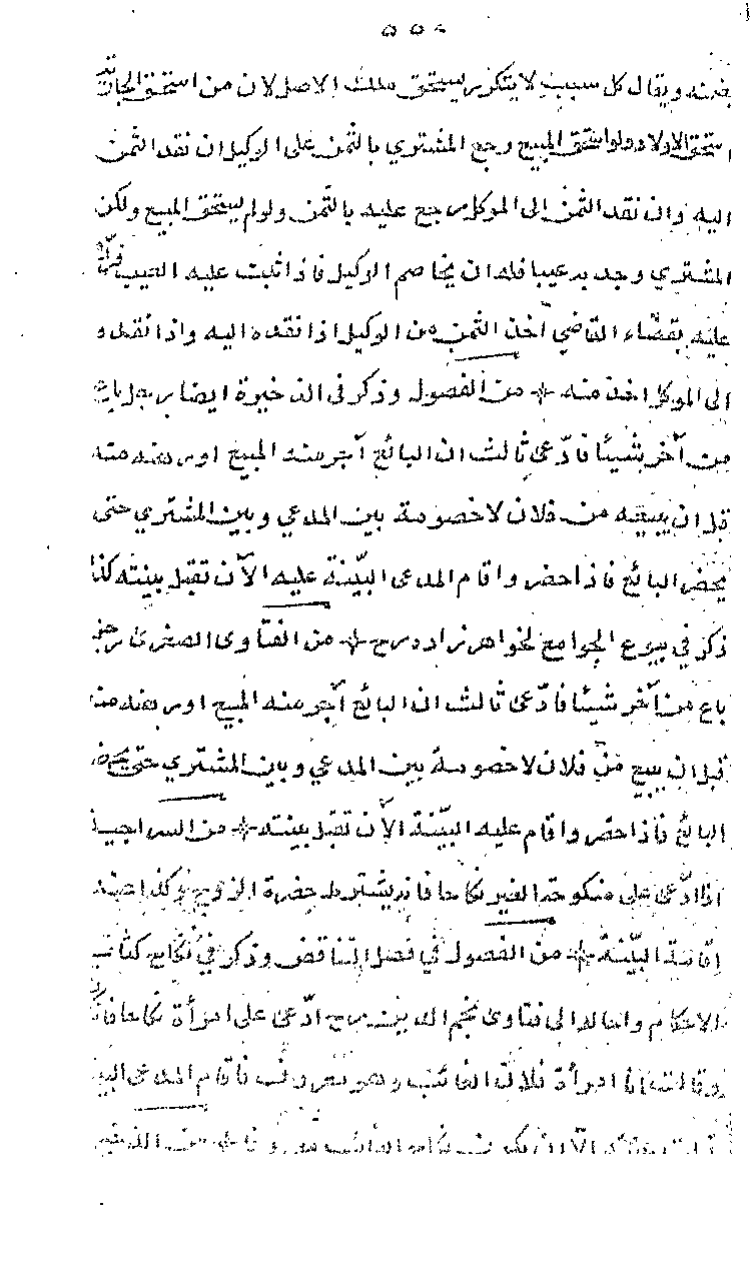 ٥٥٨
ويقال كل سبب لا يتكرر يستحق ملك الاصل لان من استحق
استحق الاولاد ولو استحق المبيع رجع المشتري بالثمن على الوكيل ان نقد الثمن
اليه وان نقد الثمن الى الموكل رجع عليه بالثمن ولو لم يستحق المبيع ولكن
المشتري وجد به عيبا فله ان يخاصم الوكيل فاذا ثبت عليه العيب
عليه بقضاء القاضي اخذ الثمن من الوكيل اذا نقده اليه واذا نقد
الى الموكل اخذ منه * من الفصول وذكر في الذخيرة ايضا رجل باع
من آخر شيئا فادّعى ثالث ان البائع آجر منه المبيع او رهنه منه
قبل ان يبيعه من فلان لا خصومة بين المدعي وبين المشتري حتى
يحضر البائع فاذا حضر واقام المدعى البيّنة عليه الآن تقبل بينته كذا
ذكر في بيوع الجوامع لخواهر زاده رح * من الفتاوى الصغرى رجل
باع من آخر شيئا فادّعى ثالث ان البائع آجر منه المبيع او رهنه منه
قبل ان يبيع من فلان لا خصومة بين المدعي وبين المشتري حتى يحضر
البائع فاذا حضر واقام عليه البيّنة الآن تقبل بينته * من السراجية
اذا ادّعى على منكوحة الغير نكاحا فانه يشترط حضرة الزوج وكذا عند
اقامة البيّنة * من الفصول في فصل التناقض وذكر في نكاح كتاب
الاحكام واحاله الى فتاوى نجم الدين رح ادّعى على امرأة نكاحا
وقالت انا امرأة فلان الغائب وهو معروف فاقام المدعى
الّا ان يكون نكاح الغائب معروفا * من